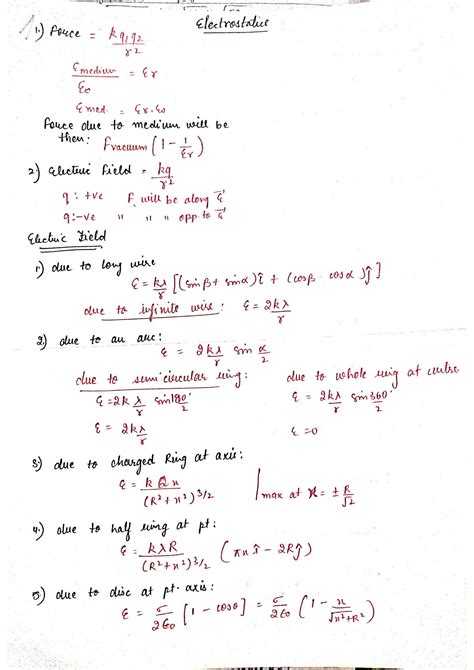 Electrostatics
1.) Force = kq₁q₂/r²
ε medium/ε₀ = εr
ε med. = εr.ε₀
Force due to medium will be
then: Fvacuum (1 - 1/εr)
2) Electric Field = kq/r²
q : +ve F will be along E
q :-ve " " " opp. to E
Electric Field
1) due to long wire
E = kλ/r [(sinβ + sinα)î + (cosβ - cosα)ĵ]
due to infinite wire : E = 2kλ/r
2) due to an arc:
E = 2kλ/r sin α/2
due to semicircular ring:
E = 2kλ/r sin180°/2
E = 2kλ/r
due to whole ring at centre
E = 2kλ/r sin360°/2
E = 0
3) due to charged Ring at axis:
E = kQx/(R²+x²)^3/2
max at x = ± R/√2
4.) due to half ring at pt:
E = kλR/(R²+x²)^3/2 (πxî - 2Rĵ)
5) due to disc at pt. axis:
E = σ/2ε₀ [1 - cosθ] = σ/2ε₀ (1 - x/√x²+R²)